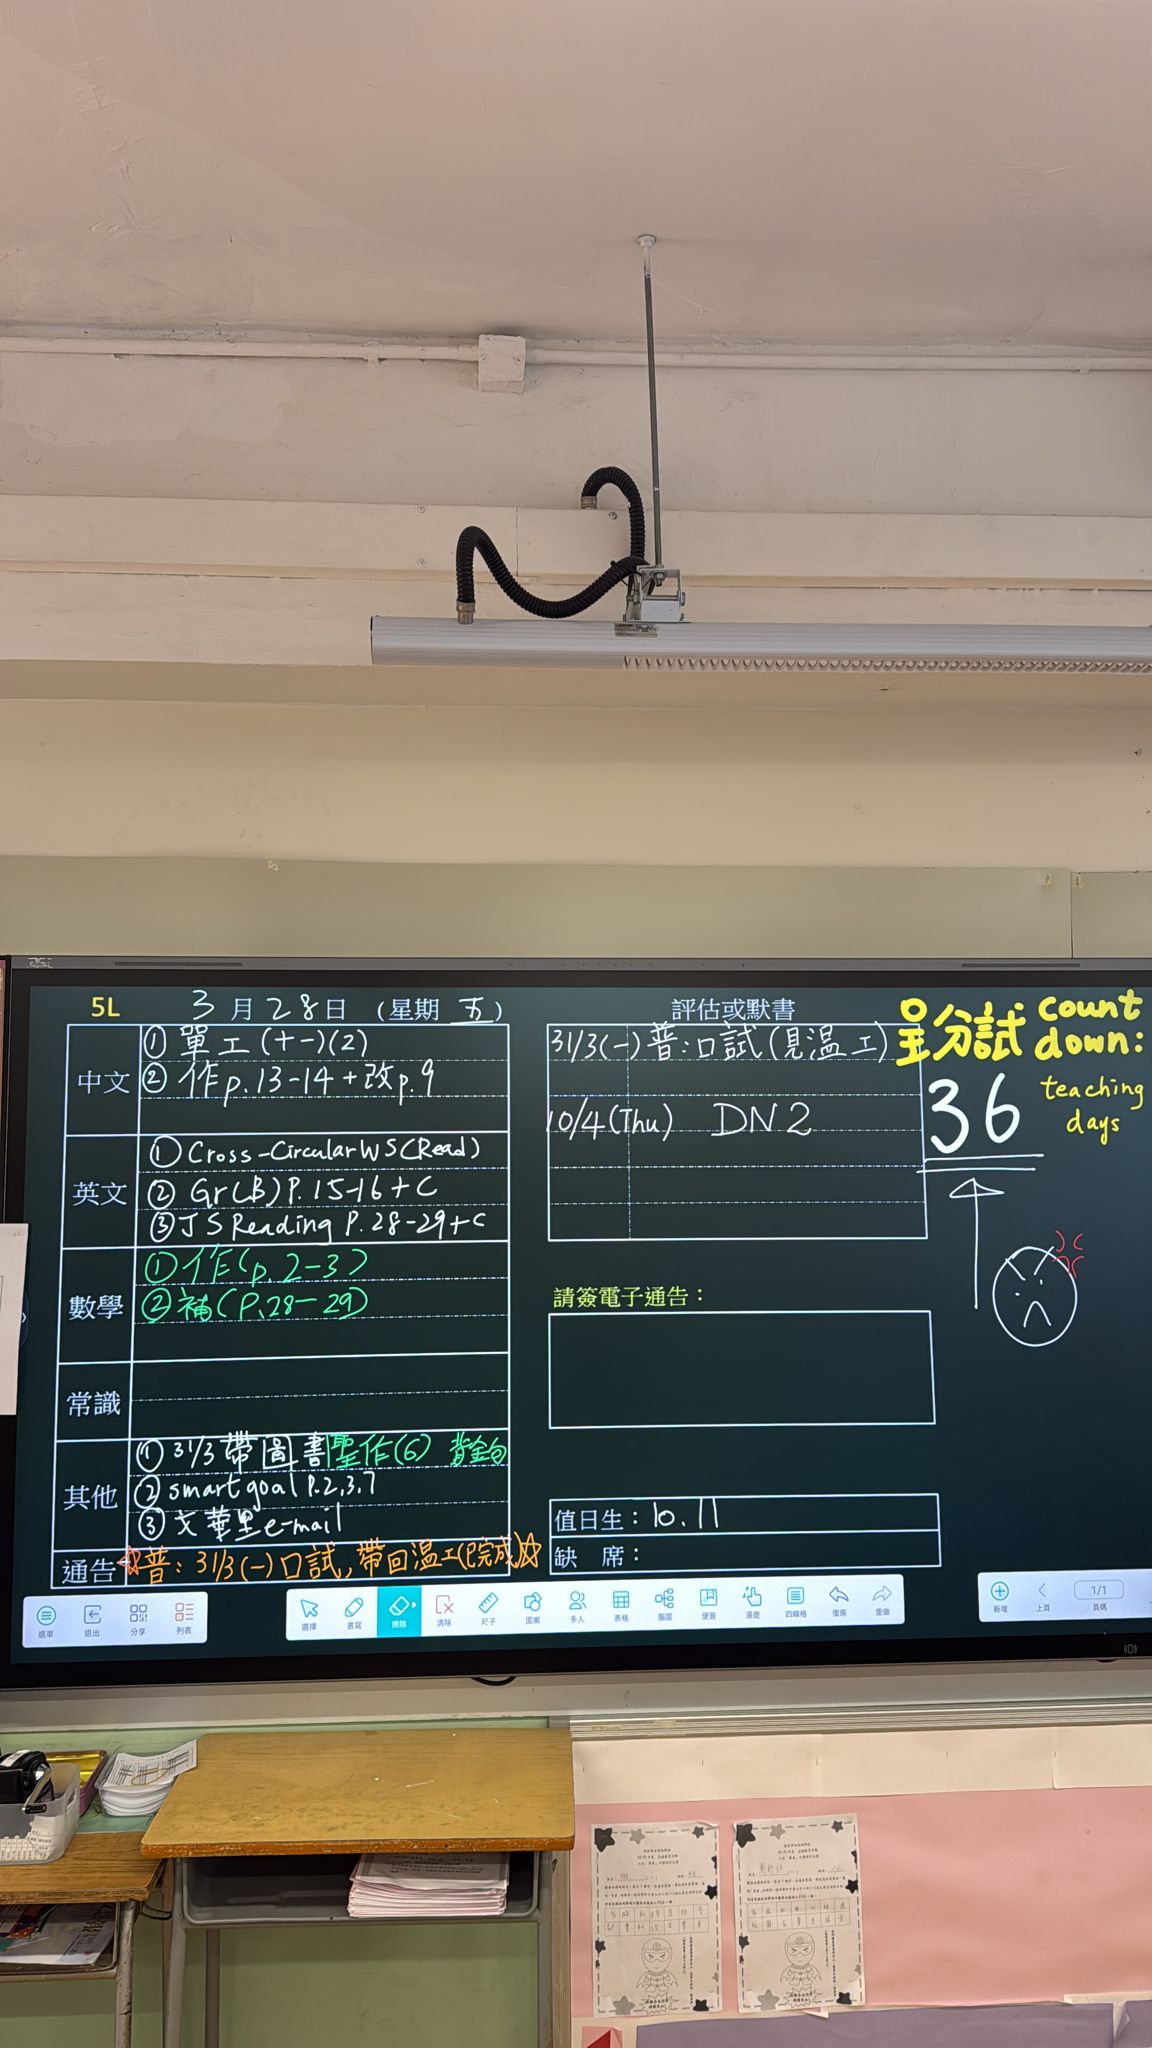 5L 3月28日 (星期五)
中文
① 單工(十一)(2)
② 作p.13-14+改p.9
英文
① Cross-Circular WS(Read)
② Gr(B) P.15-16+C
③ JS Reading P.28-29+C
數學
① 作(p.2-3)
② 補(P.28-29)
常識
其他
① 31/3帶圖書 聖作(6)
② smart goal P.2,3,7
③ 文華里e-mail
通告
☆普：31/3(一)口試,帶回温工(已完成)☆
評估或默書
31/3(一) 普:口試(見温工)
10/4(Thu) DN2
請簽電子通告：
值日生：10.11
缺 席：
呈分試 count down:
36 teaching days
選單 退出 分享 列表
選擇 書寫 擦除 清除 尺子 圖案 多人 表格 腦圖 便簽 漫遊 四線格 復原 重做
新增 上頁 1/1 頁碼